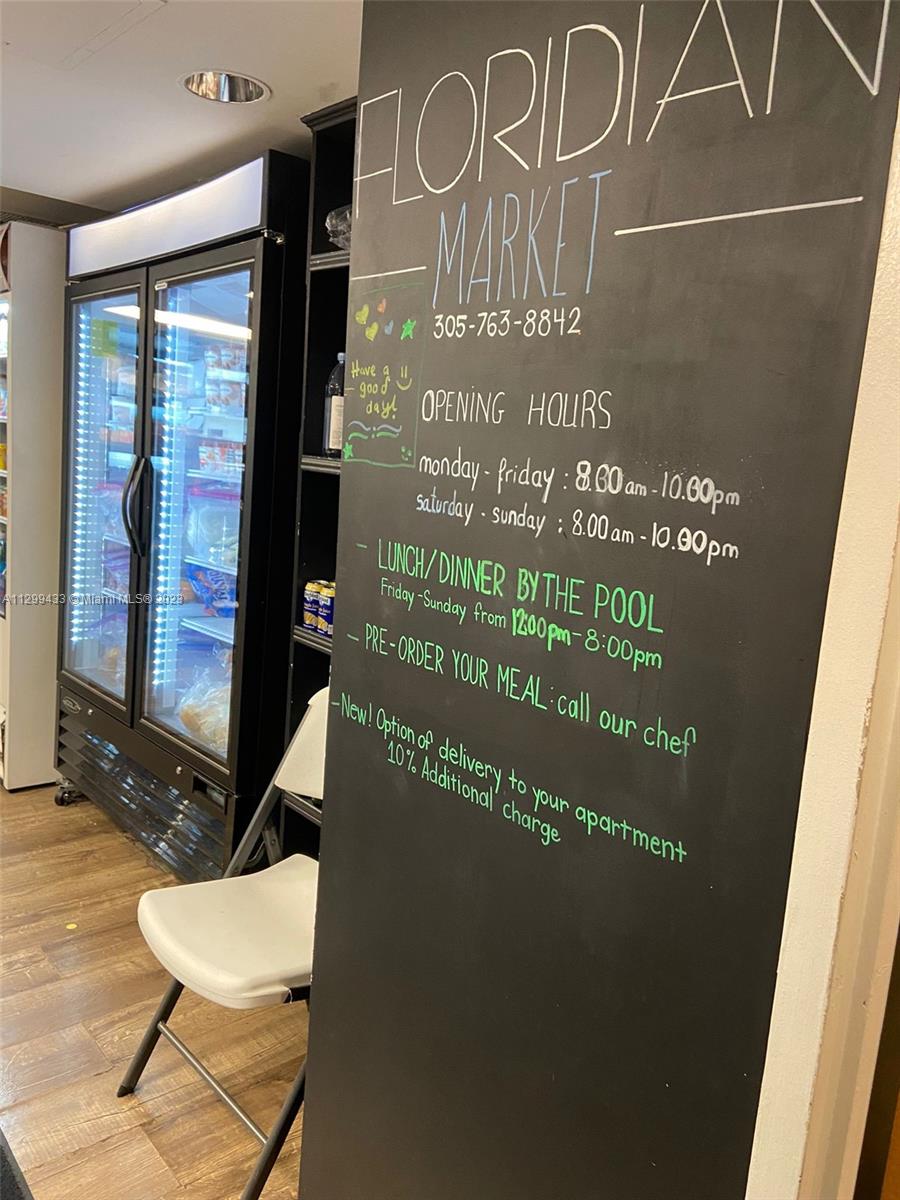 FLORIDIAN
MARKET
305-763-8842
Have a
good
day!
OPENING HOURS
monday - friday : 8.00 am - 10.00pm
saturday - sunday : 8.00 am - 10.00pm
- LUNCH/DINNER BY THE POOL
Friday-Sunday from 12:00pm-8:00pm
- PRE-ORDER YOUR MEAL: call our chef
- New! Option of delivery to your apartment
10% Additional charge
A11299433 © Miami MLS® 2023